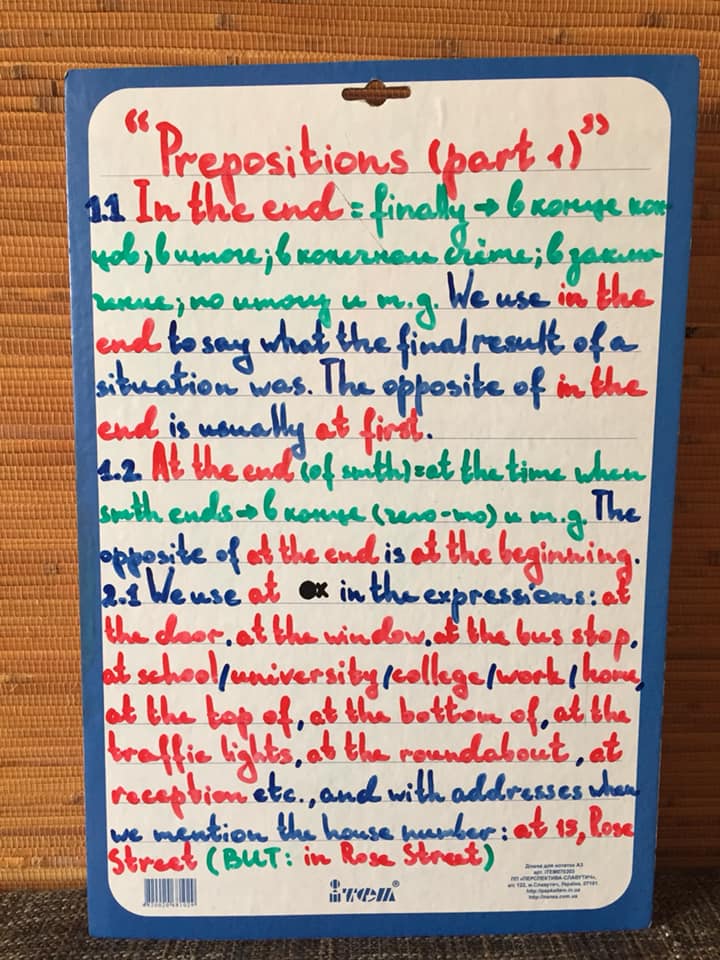 “Prepositions (part 1)”
1.1 In the end = finally → в конце кон-
цов; в итоге; в конечном счёте; в заклю-
чение; по итогу и т.д. We use in the
end to say what the final result of a
situation was. The opposite of in the
end is usually at first.
1.2. At the end (of smth) = at the time when
smth ends → в конце (чего-то) и т.д. The
opposite of at the end is at the beginning.
2.1 We use at in the expressions: at
the door, at the window, at the bus stop,
at school/university/college/work/home,
at the top of, at the bottom of, at the
traffic lights, at the roundabout, at
reception etc., and with addresses when
we mention the house number: at 15, Rose
Street (BUT: in Rose Street)
iтем®
Дошка для нотаток А3
ПП «ПЕРСПЕКТИВА-СЛАВУТИЧ»,
а/с 122, м.Славутич, Україна, 07101